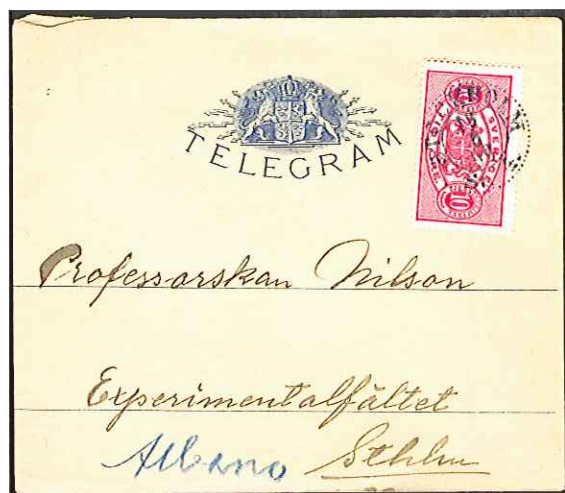 TELEGRAM
10
SVERIGE
10
Professorskan Nilson
Experimentalfältet
Albano Sthlm